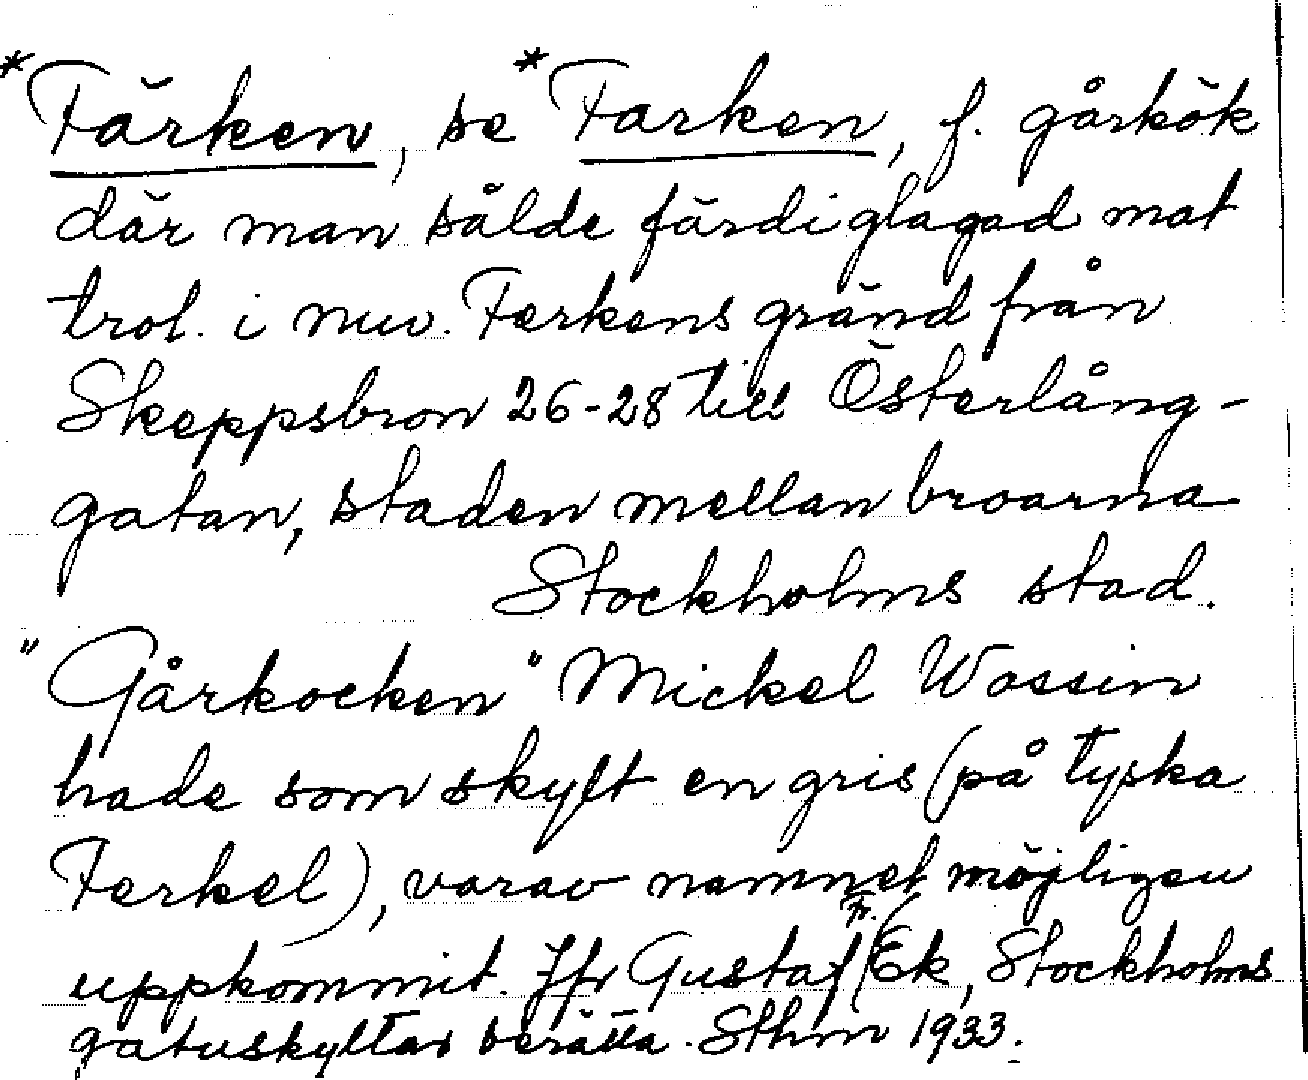 *Färken, se *Farken, f. gårkök
där man sålde färdiglagad mat
trol. i nuv. Ferkens gränd från
Skeppsbron 26-28 till Österlång-
gatan, staden mellan broarna
Stockholms stad.
"Gårkocken" Mickel Wossin
hade som skylt en gris (på tyska
Ferkel), varav namnet möjligen
uppkommit. Jfr Gustaf Fr. Ek, Stockholms
gatuskyltar berätta. Sthm 1933.